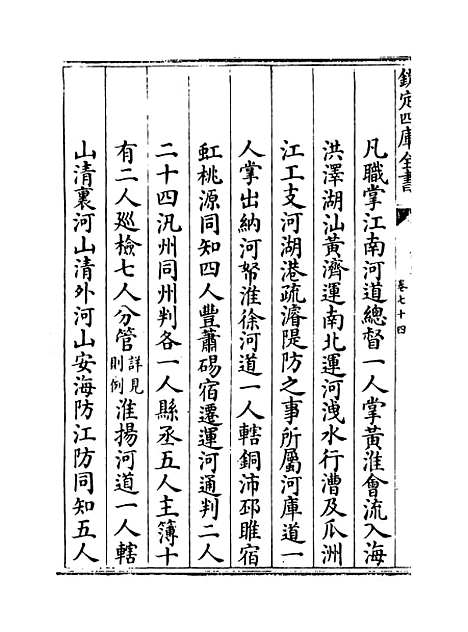 欽定四庫全書
卷七十四
凡職掌江南河道總督一人掌黃淮會流入海
洪澤湖汕黃濟運南北運河洩水行漕及瓜洲
江工支河湖港疏濬隄防之事所屬河庫道一
人掌出納河帑淮徐河道一人轄銅沛邳睢宿
虹桃源同知四人豐蕭碭宿遷運河通判二人
二十四汛州同州判各一人縣丞五人主簿十
有二人巡檢七人分管詳見則例淮揚河道一人轄
山清裏河山清外河山安海防江防同知五人